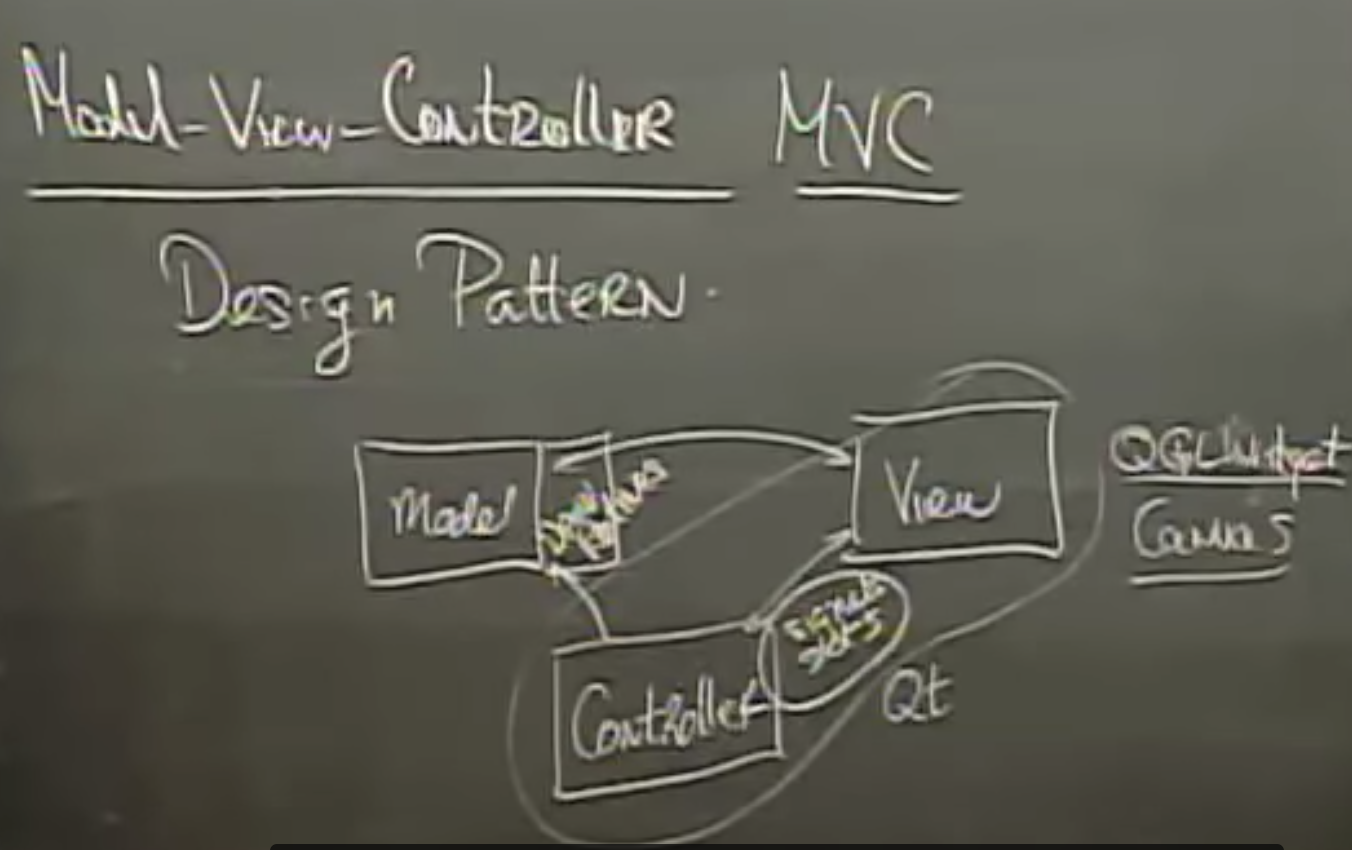 Model-View-Controller MVC
Design Pattern.
Model
View
QGLWidget
Canvas
Signals
Slots
Controller
Qt